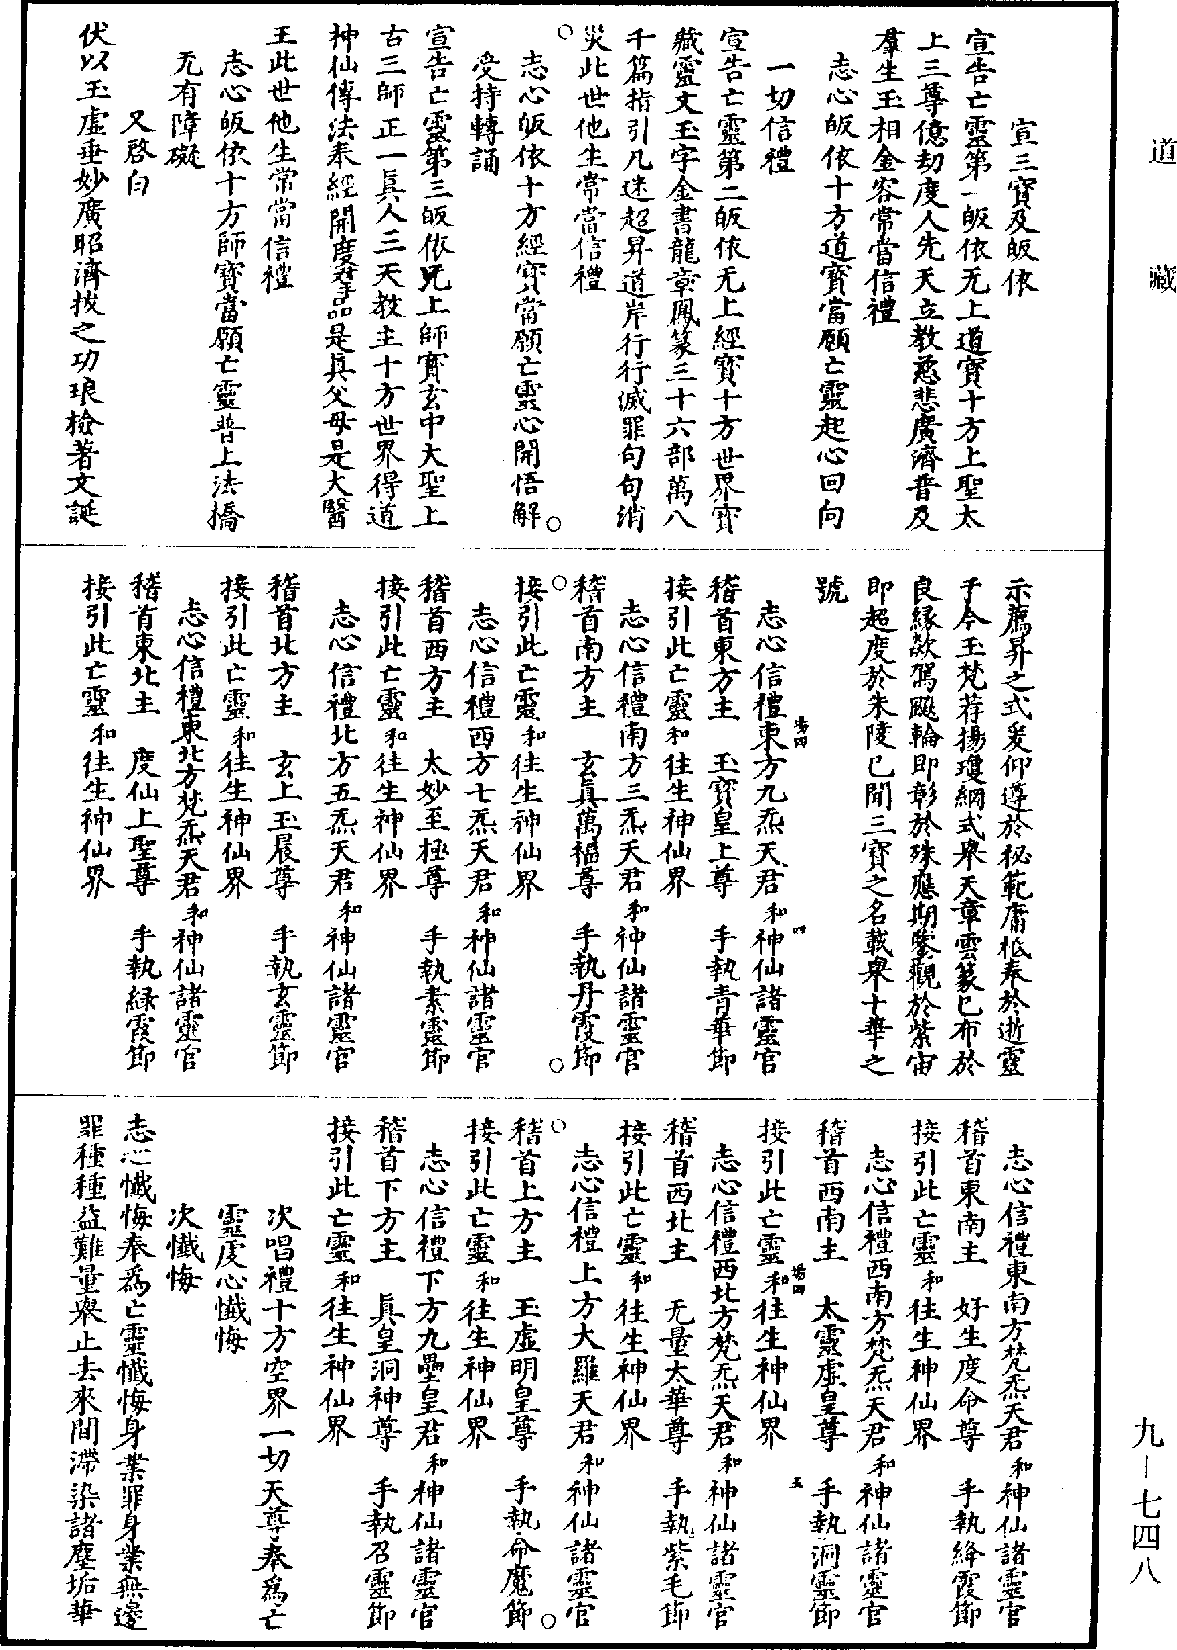 道藏
宣三寶及皈依
宣告亡靈第一皈依无上道寶十方上聖太
上三尊億劫度人先天立教慈悲廣濟普及
羣生玉相金容常當信禮
志心皈依十方道寶當願亡靈起心回向
一切信禮
宣告亡靈第二皈依无上經寶十方世界寶
藏靈文玉字金書龍章鳳篆三十六部萬八
千篇指引凡迷超昇道岸行行滅罪句句消
災此世他生常當信禮
志心皈依十方經寶當願亡靈心開悟解
受持轉誦
宣告亡靈第三皈依无上師寶玄中大聖上
古三師正一真人三天教主十方世界得道
神仙傳法奉經開度羣品是真父母是大醫
王此世他生常當信禮
志心皈依十方師寶當願亡靈普上法橋
无有障礙
又啓白
伏以玉虛垂妙廣昭濟拔之功琅檢著文誕
示薦昇之式爰仰遵於秘範庸祇奉於逝靈
于今玉梵荐揚瓊綱式舉天章雲篆已布於
良緣歘駕飈輪即彰於殊應期鑒觀於紫宙
即超度於朱陵已聞三寶之名載舉十華之
號
志心信禮東方九炁天君和神仙諸靈官
稽首東方主　玉寶皇上尊　手執青華節
接引此亡靈和往生神仙界
志心信禮南方三炁天君和神仙諸靈官
稽首南方主　玄真萬福尊　手執丹霞節
接引此亡靈和往生神仙界
志心信禮西方七炁天君和神仙諸靈官
稽首西方主　太妙至極尊　手執素靈節
接引此亡靈和往生神仙界
志心信禮北方五炁天君和神仙諸靈官
稽首北方主　玄上玉晨尊　手執玄靈節
接引此亡靈和往生神仙界
志心信禮東北方梵炁天君和神仙諸靈官
稽首東北主　度仙上聖尊　手執綠霞節
接引此亡靈和往生神仙界
志心信禮東南方梵炁天君和神仙諸靈官
稽首東南主　好生度命尊　手執絳霞節
接引此亡靈和往生神仙界
志心信禮西南方梵炁天君和神仙諸靈官
稽首西南主　太靈虛皇尊　手執洞靈節
接引此亡靈和往生神仙界
志心信禮西北方梵炁天君和神仙諸靈官
稽首西北主　无量太華尊　手執紫毛節
接引此亡靈和往生神仙界
志心信禮上方大羅天君和神仙諸靈官
稽首上方主　玉虛明皇尊　手執命魔節
接引此亡靈和往生神仙界
志心信禮下方九壘皇君和神仙諸靈官
稽首下方主　真皇洞神尊　手執召靈節
接引此亡靈和往生神仙界
次唱禮十方空界一切天尊奉為亡
靈虔心懺悔
次懺悔
志心懺悔奉為亡靈懺悔身業罪身業無邊
罪種種益難量舉止去來間滯染諸塵垢華
九—七四八